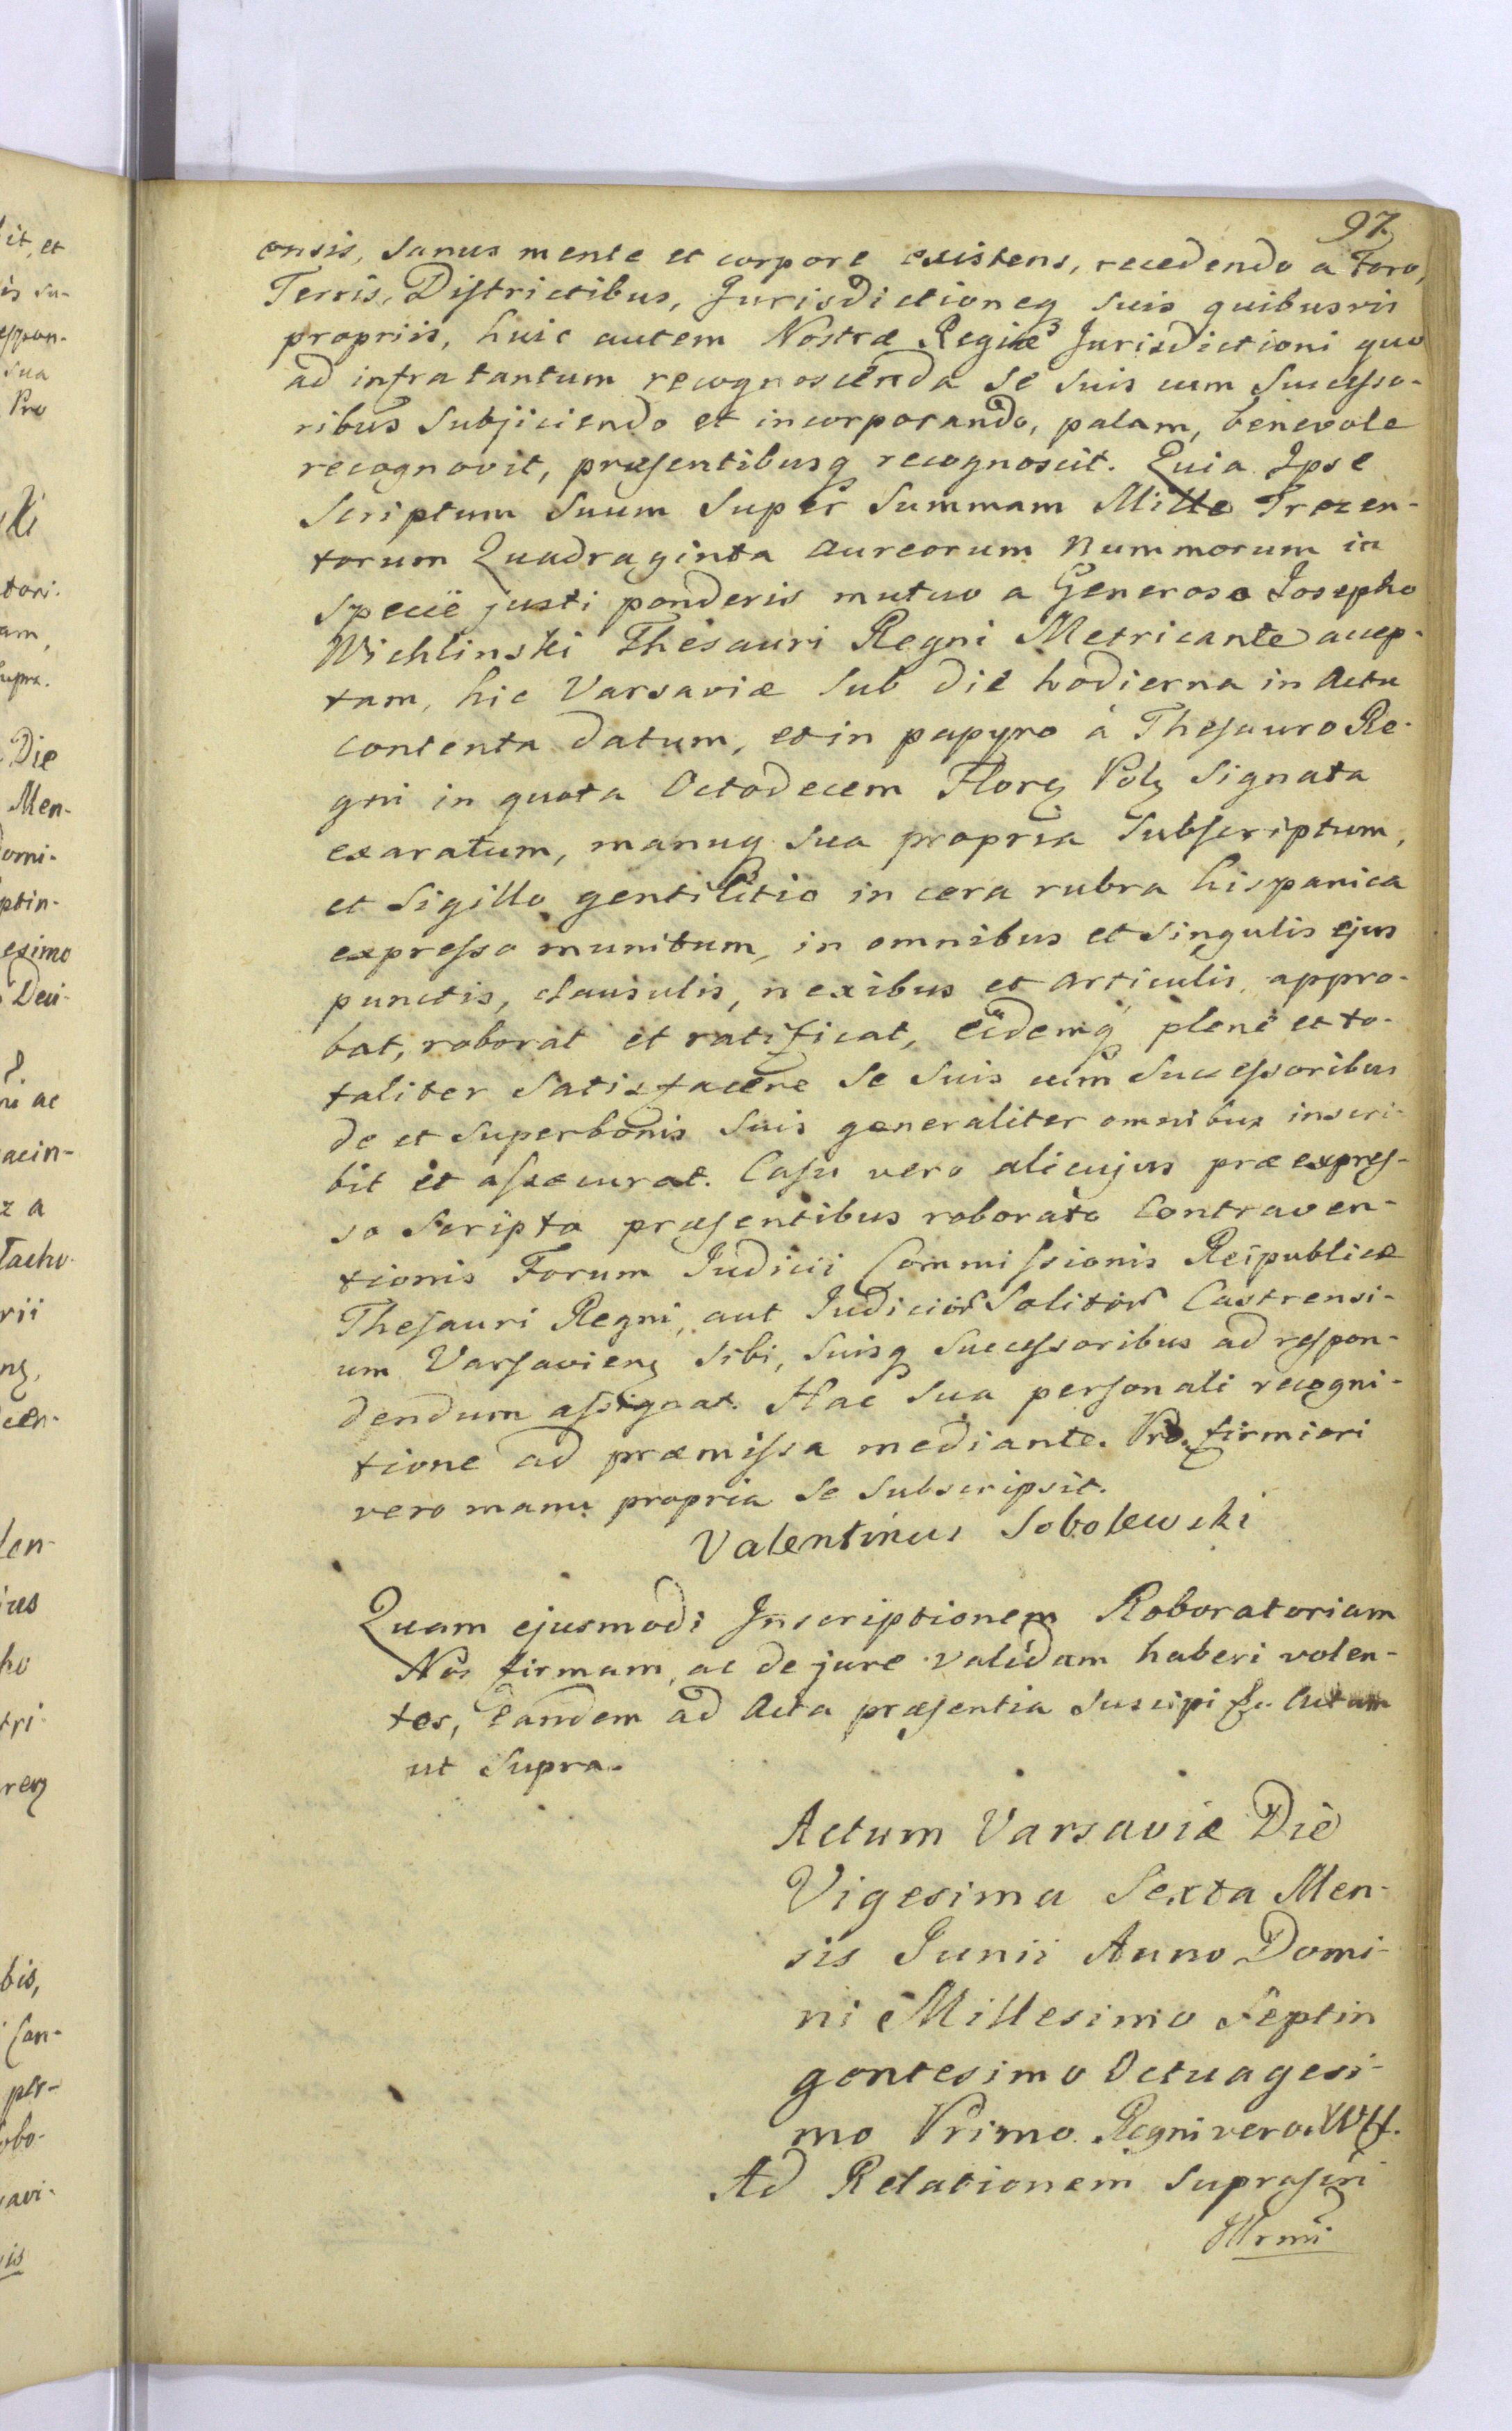 97.
ensis, Sanus mente et corpore existens, recedendo a Foro,
Terris, Districtibus, Jurisdictioneq suis quibusvis
propriis, huic autem Nostræ Regiæ Jurisdictioni quo
ad infra tantum recognoscenda se suis cum Successo-
ribus Subjiciendo et incorporando, palam, benevole
recognovit, præsentibusq recognoscit. Quia Ipse
Scriptum Suum Super Summam Mille Trecen-
torum Quadraginta Aureorum Nummorum in
Specie justi ponderis mutuo a Generoso Josepho
Wichlinski Thesauri Regni Metricante accep-
tam, hic Varsaviæ Sub die hodierna in Actu
contenta datum, et in papyro à Thesauro Re-
gni in quota Octodecem Florz Polz Signata
exaratum, manuq sua propria Subscriptum,
et Sigillo gentilitio in cera rubra hispanica
expresso munitum, in omnibus et singulis ejus
punctis, clausulis, nexibus et articulis, appro-
bat, roborat et ratificat, eidemq plene et to-
taliter Satisfacere se suis cum Successoribus
de et Super bonis Suis generaliter omnibus inscri-
bit et assecurat. Casu vero alicujus præexpres-
so Scripto præsentibus roborato Contraven-
tionis Forum Judicii Commissionis Reipublicæ
Thesauri Regni, aut Judicior Solitor Castrensi-
um Varsavienz Sibi, Suisq Successoribus ad respon-
dendum assignat. Hac Sua personali recogni-
tione ad præmissa mediante. Pro firmiori
vero manu propria Se Subscripsit.
Valentinus Sobolewski
Quam ejusmodi Inscriptionem Roboratoriam
Nos firmam, ac de jure validam haberi volen-
tes, Eandem ad Acta præsentia Suscipi Actum
ut Supra.
Actum Varsaviæ Die
Vigesima Sexta Men-
sis Junii Anno Domi-
ni Millesimo Septin
gentesimo Octuagesi-
mo Primo. Regni vero XVII.
Ad Relationem Suprascri
Illrmi
it, et
Pro
Die
Men-
omi-
ptin-
esimo
ac
z a
rii
bis,
per-
avi-
is